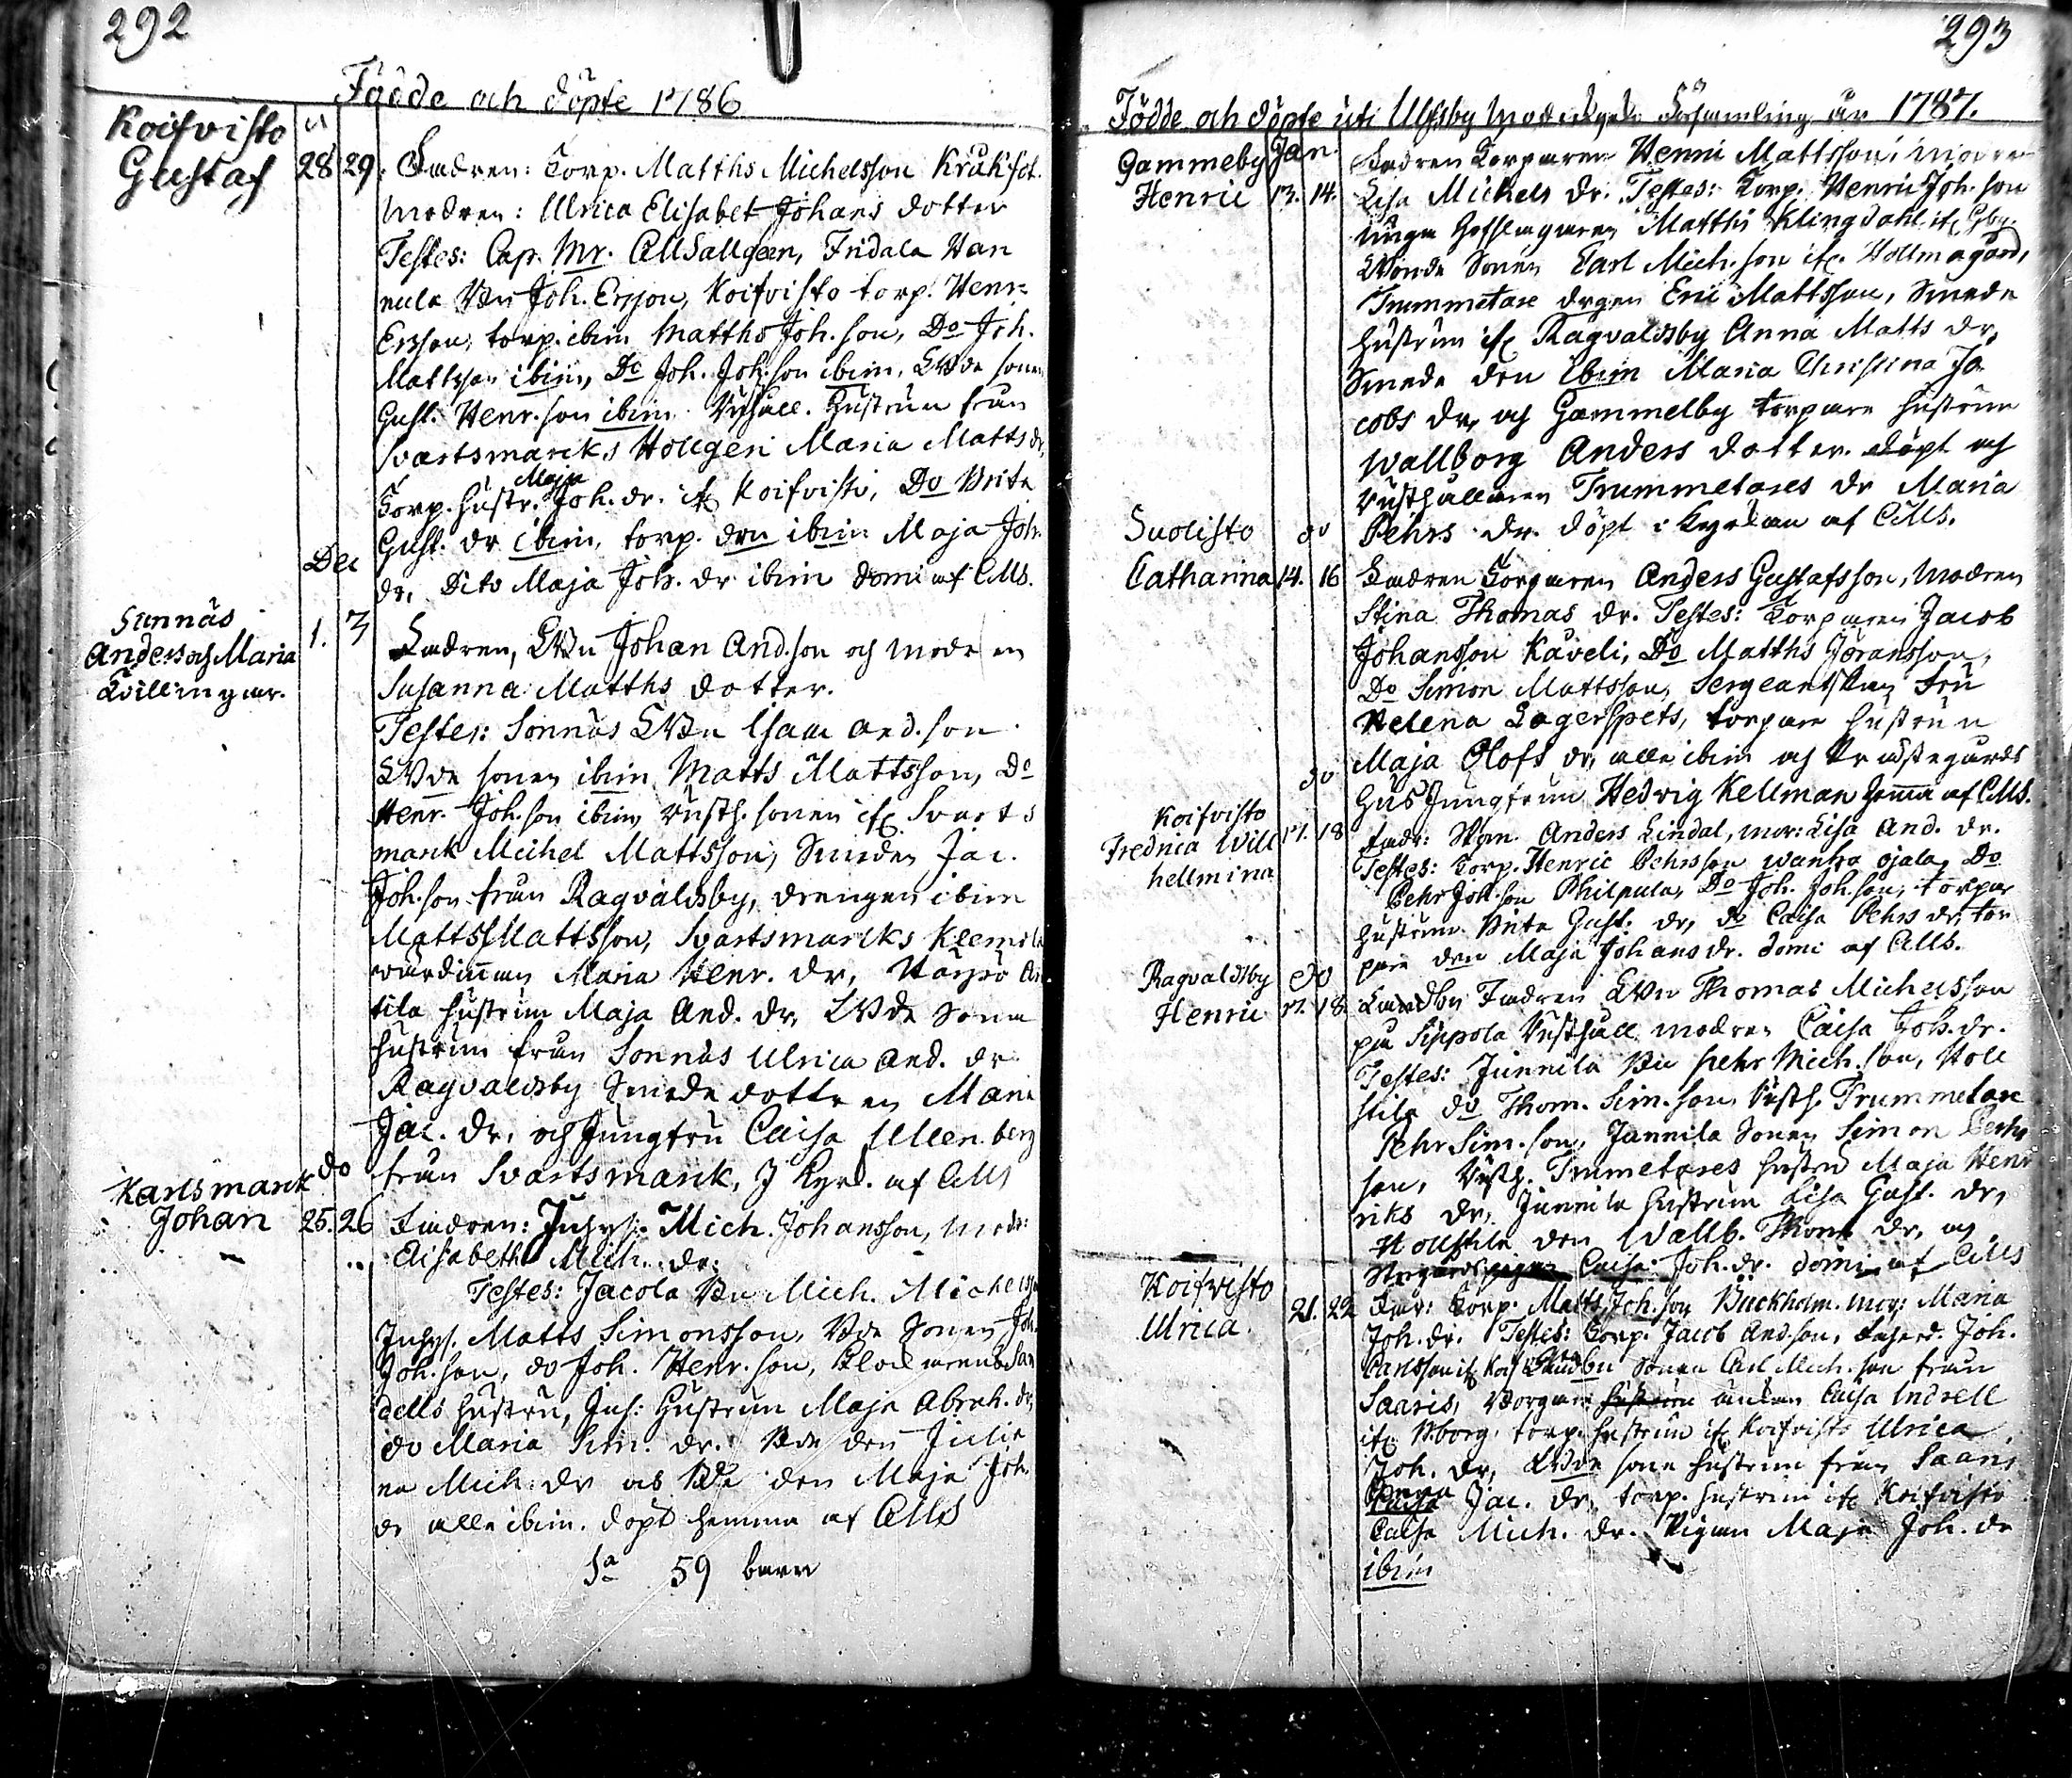 292
Födde och döpte 1786
Koifvisto
Gustaf
28 29. Fadren: Torp. Matths Michelsson Krukfot.
modren: Ulrica Elisabet Johans dotter
Testes: Cap. Mr. CM Sallgeen, Fridala Han
nula Bn Joh. Ersson, Koifvisto torp. Henr.
Ersson, torp. ibim Matths Joh. son, Do Joh.
Mattsson ibim, Do Joh. Joh. son ibim, sonen
Gust. Henr. son ibim. Hustrun från
Svartsmarks Hollgeri Maria Matts dr,
Maja
Torp. hustr. Joh. dr. if Koifvisto, Do Brita
Gust. dr ibim, torp. drn ibim Maja Joh.
Dec
dr, Dito Maja Joh. dr ibim domi af CMS.
Sunnäs
Anders och Maria
Tvillingar.
1. 3
Fadren, Johan And. son och modren
Susanna Matths dotter.
Testes: Sonnäs Isaac And. son
sonen ibim Matts Mattsson, Do
Henr. Joh. son ibim, Rusth. sonen if Svarts
mark Michel Mattsson, Smeden Jac.
Joh. son från Ragvaldsby, drengen ibim
Matts Mattsson, Svartsmarks Klemola
värdinnan Maria Henr. dr,
tila hustrun Maja And. dr, Sone
hustrun från Sonnäs Ulrica And. dr
Ragvaldsby Smede dottren Maria
Jac. dr, och Jungfru Caisa Ullenberg
från Svartsmark, I Kyrk. af CMS
Karlsmark do
Johan 25. 26 Fadren: Inhys. Mich. Johansson, modr:
Elisabeth Mich. dr.
Testes: Jacola Bn Mich. Michelss
Inhys. Matts Simonsson, Bde Sonen Joh.
Joh. son, do Joh. Henr. son, San
dells hustru, Inh: Hustrun Maja Abrah. dr,
do Maria Sim. dr. Bde drn Julia
na Mich. dr och Bde drn Maja Joh.
dr alle ibim. döpt hemma af CMS
Sa 59 barn
293
Födde och döpte uti Ulfsby Moderkyrko Församling år 1787.
Gammeby Jan.
Henric 13. 14.
Fadren Torparen Henric Mattsson, modren
Lisa Michels dr. Testes: Torp. Henric Joh. son
unga Matths Klingdahl if Gby.
Sonen Carl Mich. son if. Hollmagård,
Trummetare drgen Eric Mattsson, Smede
hustrun if Ragvaldsby Anna Matts dr,
Smede drn ibim Maria Christina Ja
cobs dr, och Gammelby torpare hustrun
Wallborg Anders dotter. och
Rusthållaren Trummetares dr Maria
Pehrs dr. döpt i Kyrkan af CMS.
Suolisto do
Catharina 14. 16
Fadren Torparen Anders Gustafsson, modren
Stina Thomas dr. Testes: Torparen Jacob
Johansson Kaveli, Do Matths Göransson,
Do Simon Mattsson, Sergeantskan Fru
Helena Lagerspets, torpare hustrun
Maja Olofs dr, alle ibim och Prästegårds
do
Hus Jungfrun Hedvig Kellman hemma af CMS.
Koifvisto
Fredrica Will
hellmina
17. 18
Fadr: Anders Lindal, mor: Lisa And. dr.
Testes: Torp. Henric Pehrsson Wanha ojala, Do
Pehr Joh. son Philpula, Do Joh. Joh. son, torpar
hustrun Brita Gust. dr, do Caisa Pehrs dr, tor
pare drn Maja Johans dr. domi af CMS.
Ragvaldsby do
Henric 17. 18
Fadren Thomas Michelsson
på Sippola Rusthåll modren Caisa Joh. dr.
Testes: Junnila Bn Pehr Mich. son, Holl
stila do Thom. Sim. son, Rusth. Trummetare
Pehr Sim. son, Jannila Sonen Simon Pehrs
son, Rusth. Trummetares hustru Maja Hen
riks dr, Junnila hustrun Lisa Gust. dr,
Hollstila drn Wallb. Thom. dr, och
pigan Caisa Joh. dr. domi af CMS
Koifvisto
Ulrica. 21. 22
Fadr: Torp. Matts Joh. son Bückholm. mor: Maria
Joh. dr. Testes: Torp. Jacob And. son, Joh.
Carlsson if Koif Sonen Carl Mich. son från
Saaris, Borgare hustrun enkan Caisa Indrell
if Bborg. torp. hustrun if Koifvisto Ulrica
Joh. dr, sone hustrun från Saaris
Anna
Caisa Jac. dr, torp. hustrun if Koifvisto
Caisa Mich. dr. Pigan Maja Joh. dr
ibim